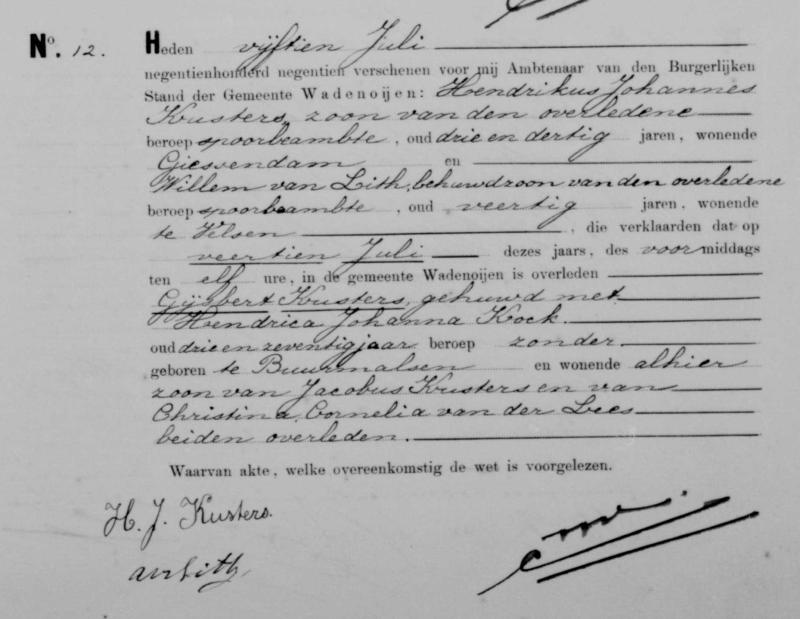 No. 12. Heden vijftien Juli
negentienhonderd negentien verschenen voor mij Ambtenaar van den Burgerlijken
Stand der Gemeente Wadenoijen: Hendrikus Johannes
Kusters, zoon van den overledene
beroep spoorbeambte, oud drie en dertig jaren, wonende
Giesendam en
Willem van Lith, behuwdzoon van den overledene
beroep spoorbeambte, oud veertig jaren, wonende
te Velsen, die verklaarden dat op
veertien Juli dezes jaars, des voormiddags
ten elf ure, in de gemeente Wadenoijen is overleden
Gijsbert Kusters, gehuwd met
Hendrica Johanna Kock.
oud drie en zeventig jaar beroep zonder.
geboren te Buurmalsen en wonende alhier
zoon van Jacobus Kusters en van
Christina Cornelia van der Lees
beiden overleden.
Waarvan akte, welke overeenkomstig de wet is voorgelezen.
H. J. Kusters.
WvLith